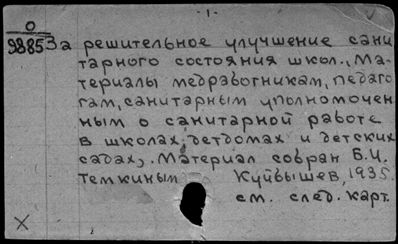 - 1 -
0
98853
За решительное улучшение сани
тарного состояния школ., Ма-
териалы медработникам, педаго
гам, санитарным уполномочен
ным о санитарной работе
в школах, детдомах и детских
садах, Материал собран Б.И.
Темкиным Куйбышев, 1935.
см. след. карт.
X